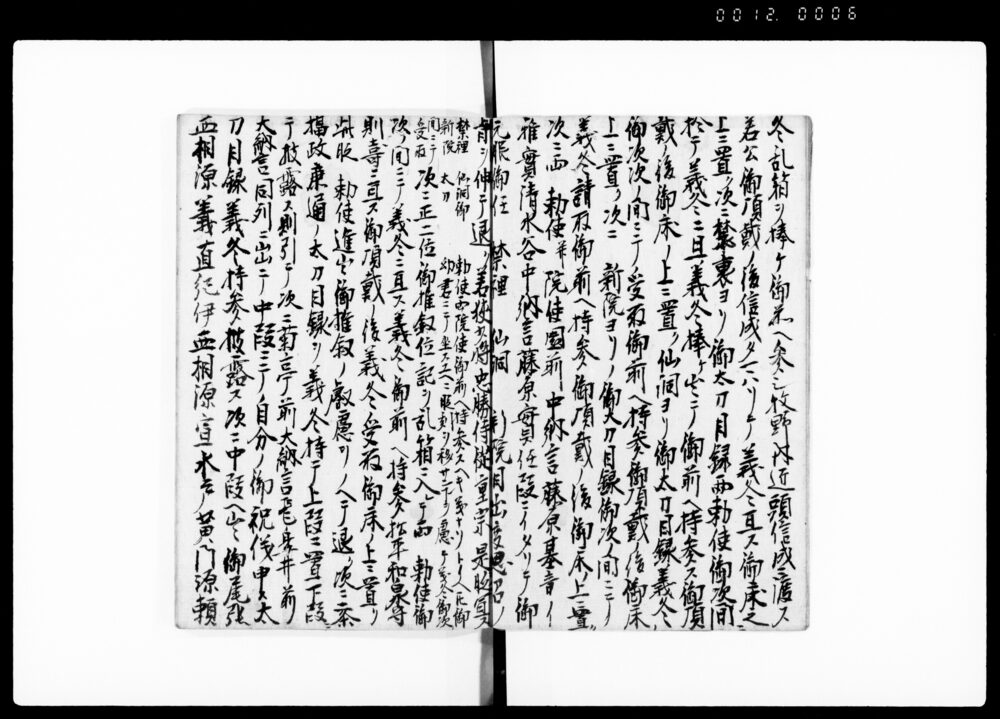 0012. 0006
冬乱箱ヲ捧ケ御前ヘ参ル牧野内近頭信成ニ渡ス
若公御頂戴ノ後信成タマハリテ義冬ニ亘ス御床之
上ニ置ク次ニ禁裏ヨリ御太刀目録両勅使御次間
於テ義冬ニ亘ス義冬捧ケ出テ御前ヘ持参ス御頂
戴ノ後御床ノ上ニ置ク仙洞ヨリ御太刀目録義冬
御次ノ間ニテ受取御前ヘ持参御頂戴ノ後御床
上ニ置ク次ニ 新院ヨリノ御太刀目録御次ノ間ニテ
義冬請取御前ヘ持参御頂戴ノ後御床ノ上ニ置
次ニ両 勅使并院使園前中納言藤原基音
雅實清水谷中納言藤原實任段ニイタリテ御
元服御任 禁裡 仙洞 新院目出度思召ノ
旨ヲ伸テ退ク若狭少将忠勝侍従重宗是
禁裡 仙洞御 勅使両院使御前ヘ持参
新院 太刀 幼君ニテ坐ス
受取 次ニ正二位御推叙位記ヲ乱箱ニ入テ両 勅使御
次ノ間ニテ義冬ニ亘ス義冬御前ヘ持参松平和泉守
則壽ニ亘ス御頂戴ノ後義冬受取御床ノ上ニ置ク
此段 勅使進出御推叙ノ叡慮ヲノヘテ退ク次ニ二条
摂政康通ノ太刀目録ヲ義冬持テ上段ニ置下段
テ披露ス則引テ次ニ菊亭前大納言飛鳥井前
大納言同列ニ出テ中段ニテ自分ノ御祝儀申太
刀目録義冬持参披露ス次ニ中段ヘ出ツ御尾張
亜相源義直紀伊亜相源頼宣水戸黄門源頼